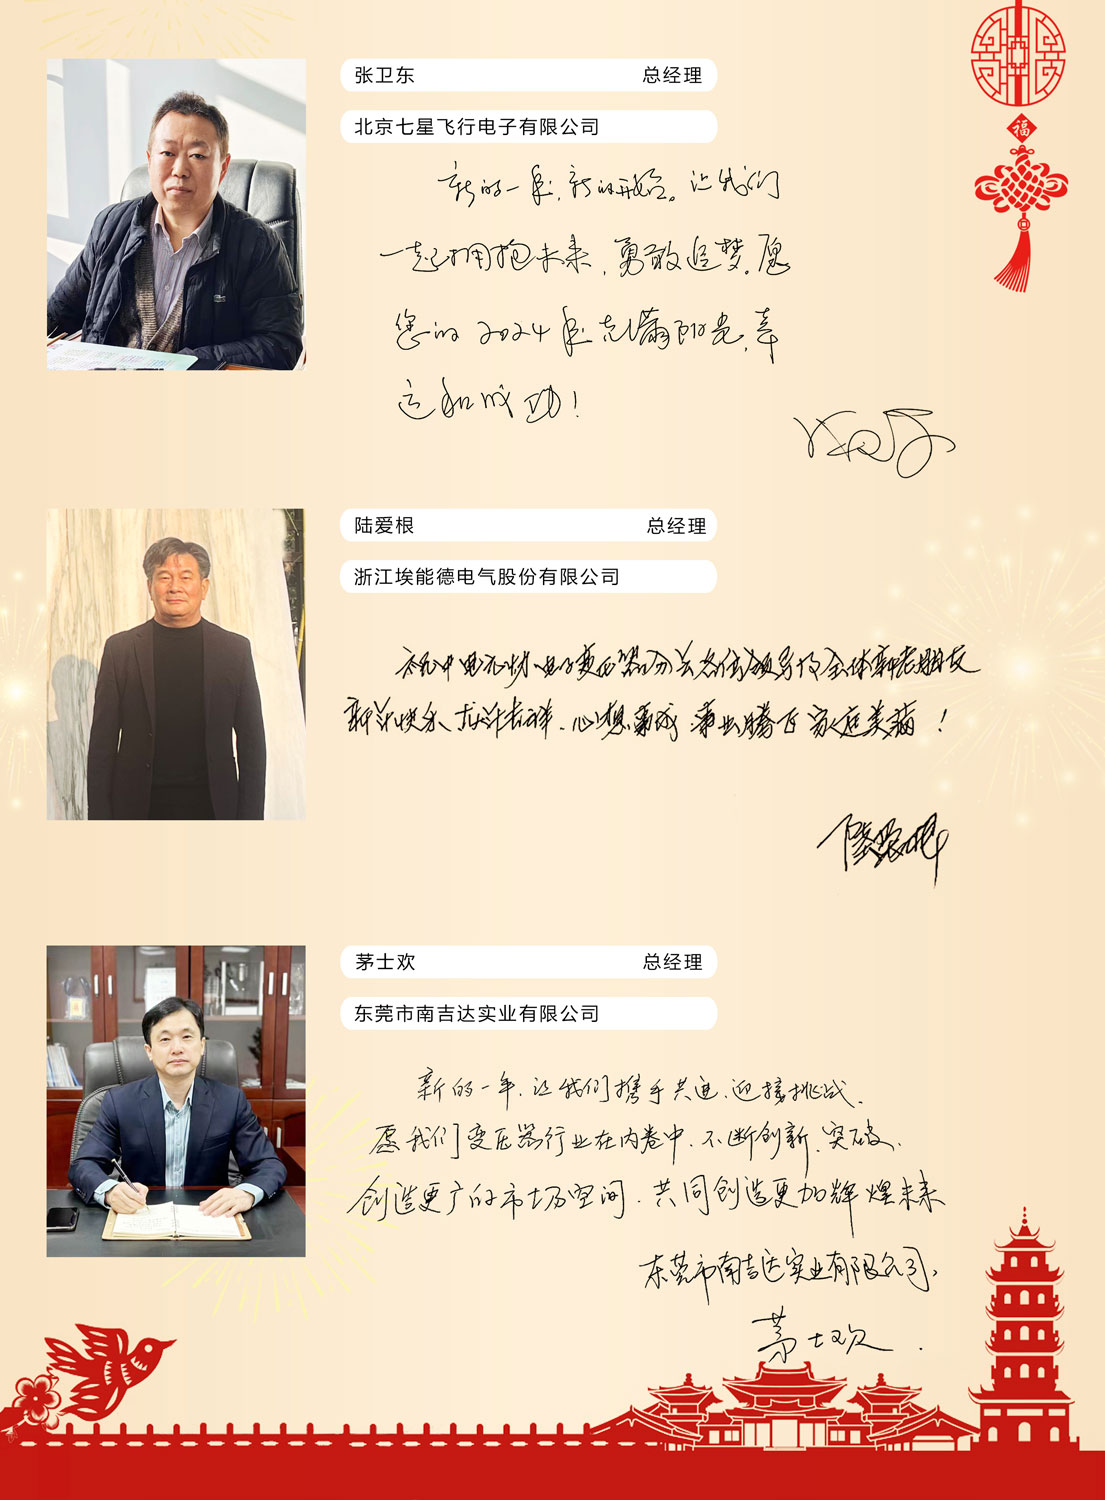 福
张卫东 总经理
北京七星飞行电子有限公司
新的一年,新的开始。让我们
一起拥抱未来,勇敢追梦,愿
您的2024年充满阳光,幸
运和成功!
陆爱根 总经理
浙江埃能德电气股份有限公司
祝中电元协电子变压器分会各位领导及全体新老朋友
新年快乐、龙年吉祥、心想事成 事业腾飞 家庭美满!
陆爱根
茅士欢 总经理
东莞市南吉达实业有限公司
新的一年,让我们携手共进,迎接挑战,
愿我们变压器行业在内卷中,不断创新,突破,
创造更广的市场空间,共同创造更加辉煌未来
东莞市南吉达实业有限公司,
茅士欢.